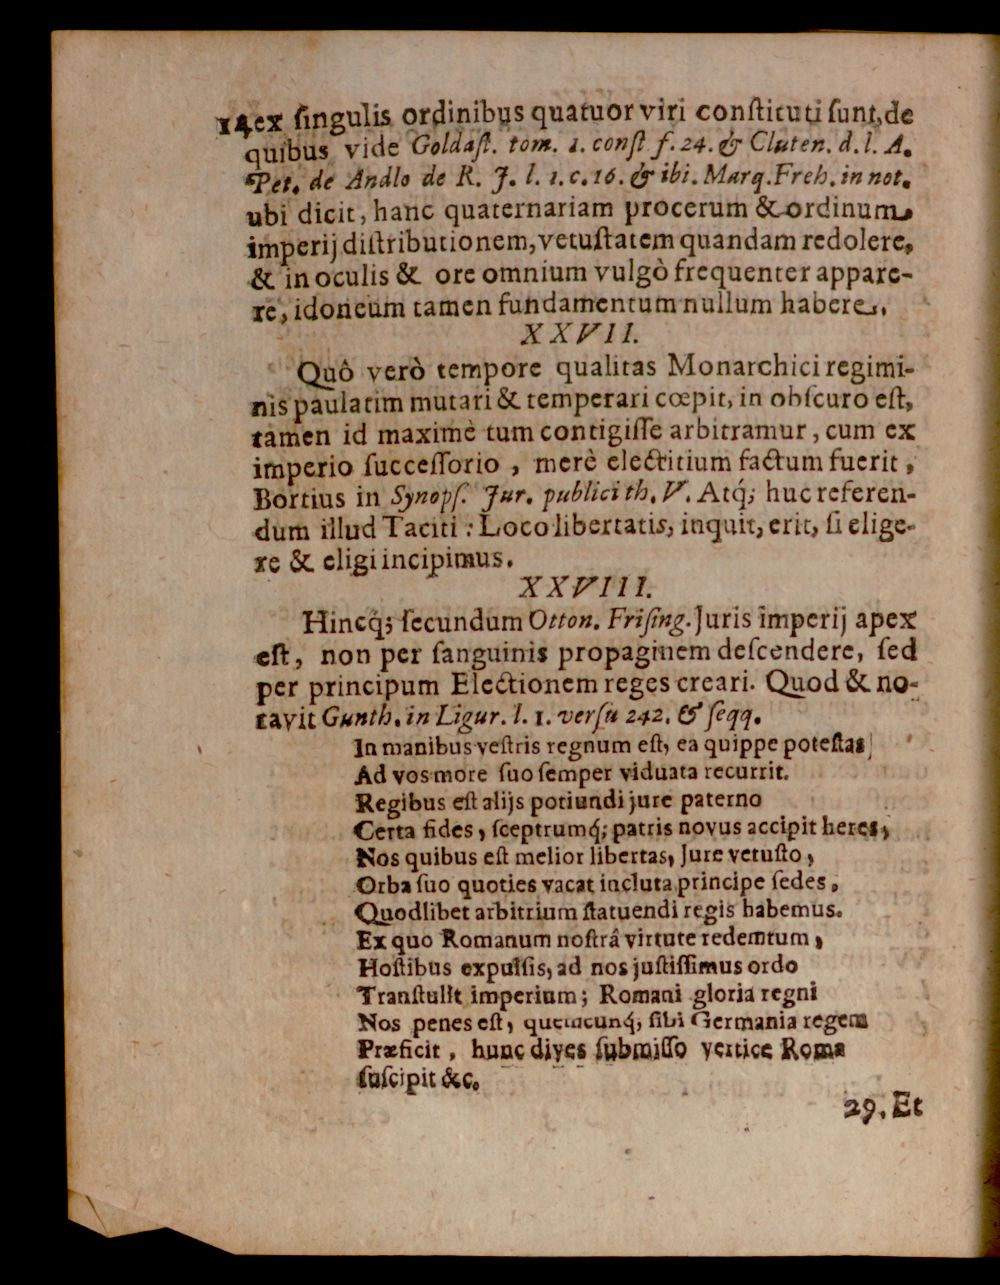 14ex ſingulis ordinibus quatuor viri conſtituti ſunt, de
quibus vide Goldaſt. tom. 1. conſt f. 24. & Cluten. d. l. A.
Pet. de Andlo de R. J. l. 1. c. 16. & ibi. Marq. Freh. in not.
ubi dicit, hanc quaternariam procerum & ordinum
imperij diſtributionem, vetuſtatem quandam redolere,
& in oculis & ore omnium vulgò frequenter appare-
re, idoneum tamen fundamentum nullum habere.
XXVII.
Quô verò tempore qualitas Monarchici regimi-
nis paulatim mutari & temperari cœpit, in obſcuro eſt,
tamen id maximè tum contigiſſe arbitramur, cum ex
imperio ſucceſſorio, merè electitium factum fuerit,
Bortius in Synopſ. Jur. publici th. V. Atq́; huc referen-
dum illud Taciti: Loco libertatis, inquit, erit, ſi elige-
re & eligi incipimus.
XXVIII.
Hincq́; ſecundum Otton. Friſing. Juris imperij apex
eſt, non per ſanguinis propaginem deſcendere, ſed
per principum Electionem reges creari. Quod & no-
tavit Gunth. in Ligur. l. 1. verſu 242. & ſeqq.
In manibus veſtris regnum eſt, ea quippe poteſtas
Ad vos more ſuo ſemper viduata recurrit.
Regibus eſt alijs potiundi jure paterno
Certa fides, ſceptrumq́; patris novus accipit heres,
Nos quibus eſt melior libertas, Jure vetuſto,
Orba ſuo quoties vacat incluta principe ſedes,
Quodlibet arbitrium ſtatuendi regis habemus.
Ex quo Romanum noſtrâ virtute redemtum,
Hoſtibus expulſis, ad nos juſtiſſimus ordo
Tranſtulit imperium; Romani gloria regni
Nos penes eſt, quemcunq́; ſibi Germania regem
Præficit, hunc dives ſubmiſſo vertice Roma
ſuſcipit &c.
29. Et